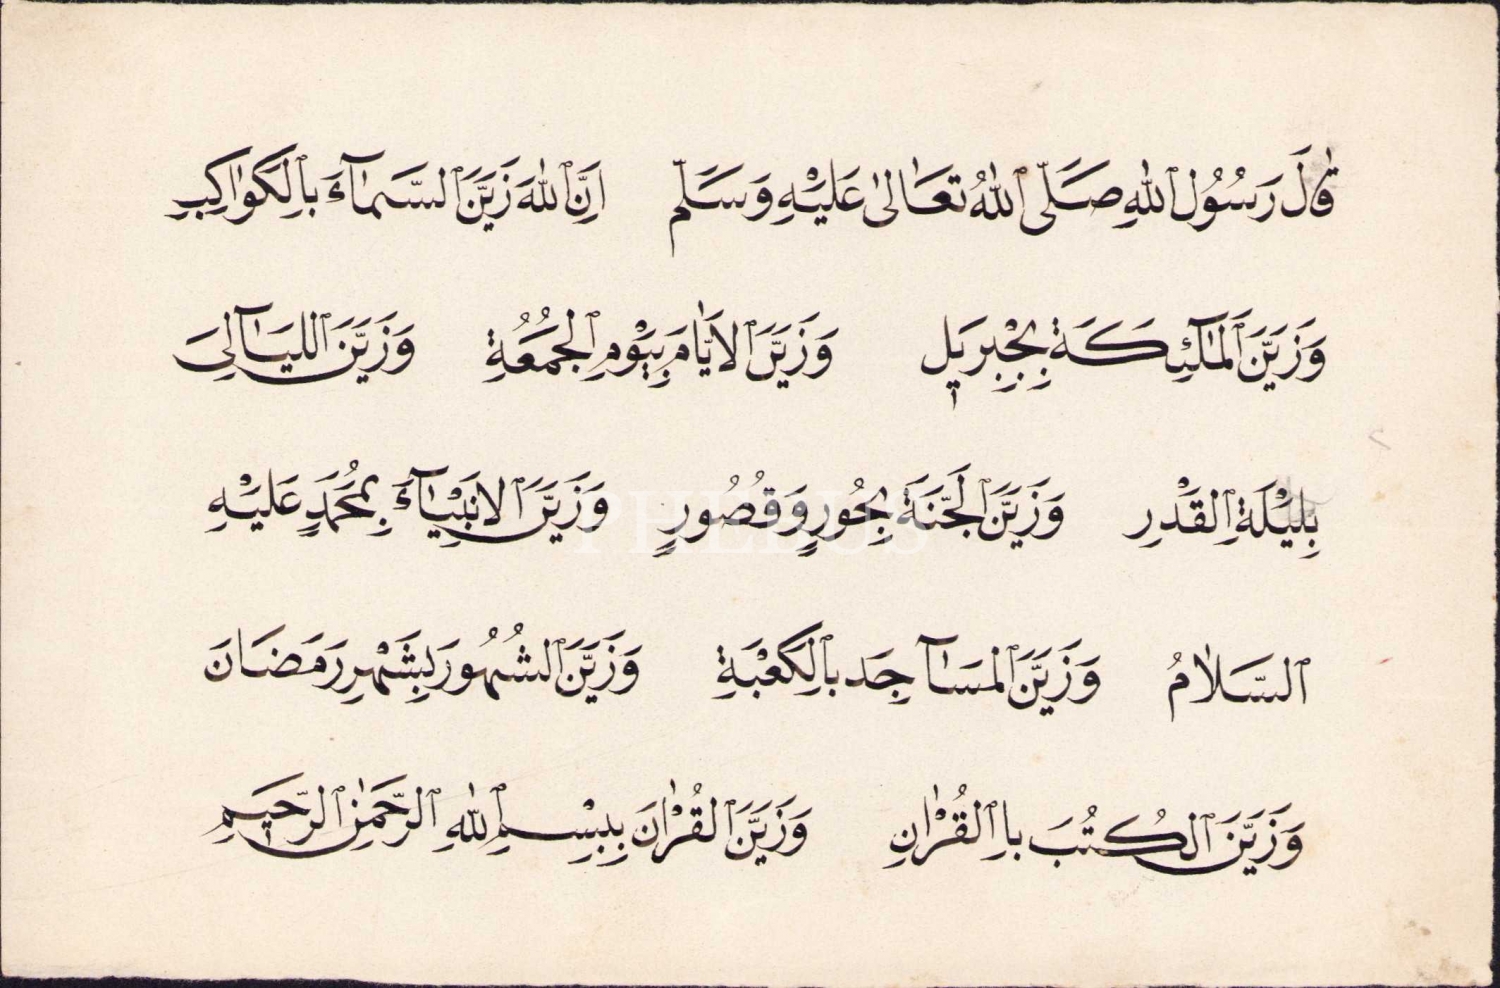 قَالَ رَسُولُ ٱللهِ صَلَّى ٱللهُ تَعَالٰى عَلَيْهِ وَسَلَّمْ اِنَّ ٱللهَ زَيَّنَ ٱلسَّمَاۤءَ بِالْكَوَاكِبِ
وَزَيَّنَ ٱلْمَلٰۤئِكَةَ بِجِبْرِيلَ وَزَيَّنَ ٱلْاَيَّامَ بِيَوْمِ ٱلْجُمُعَةِ وَزَيَّنَ ٱللَّيَاۤلِىَ
بِلَيْلَةِ ٱلْقَدْرِ وَزَيَّنَ ٱلْجَنَّةَ بِحُورٍ وَقُصُورٍ وَزَيَّنَ ٱلْاَنْبِيَاۤءَ بِمُحَمَّدٍ عَلَيْهِ
ٱلسَّلَامُ وَزَيَّنَ ٱلْمَسَاۤجِدَ بِالْكَعْبَةِ وَزَيَّنَ ٱلشُّهُورَ بِشَهْرِ رَمَضَانَ
وَزَيَّنَ ٱلْكُتُبَ بِاالْقُرْاٰنِ وَزَيَّنَ ٱلْقُرْاٰنَ بِبِسْمِ ٱللهِ ٱلرَّحْمٰنِ ٱلرَّحِيمِ
PHEBUS